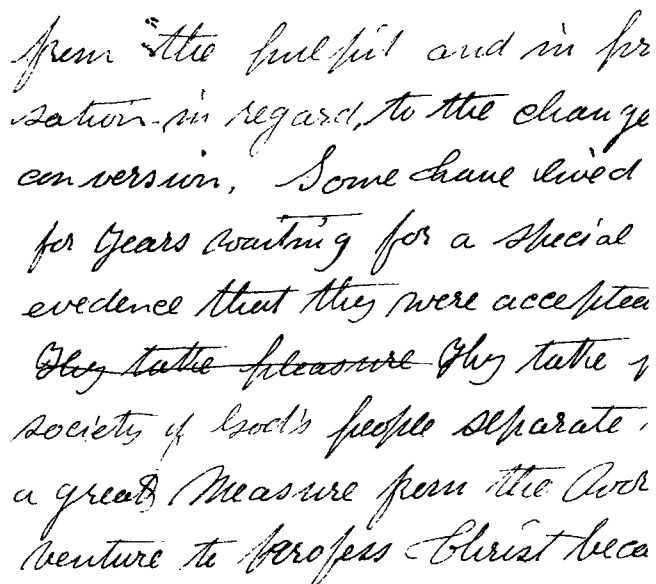 from the pulpit and in pr
sation in regard, to the change
conversion. Some have lived
for years waiting for a special
evidence that they were accepted
They take pleasure They take p
society of God's people separate
a great measure from the wor
venture to profess Christ beca